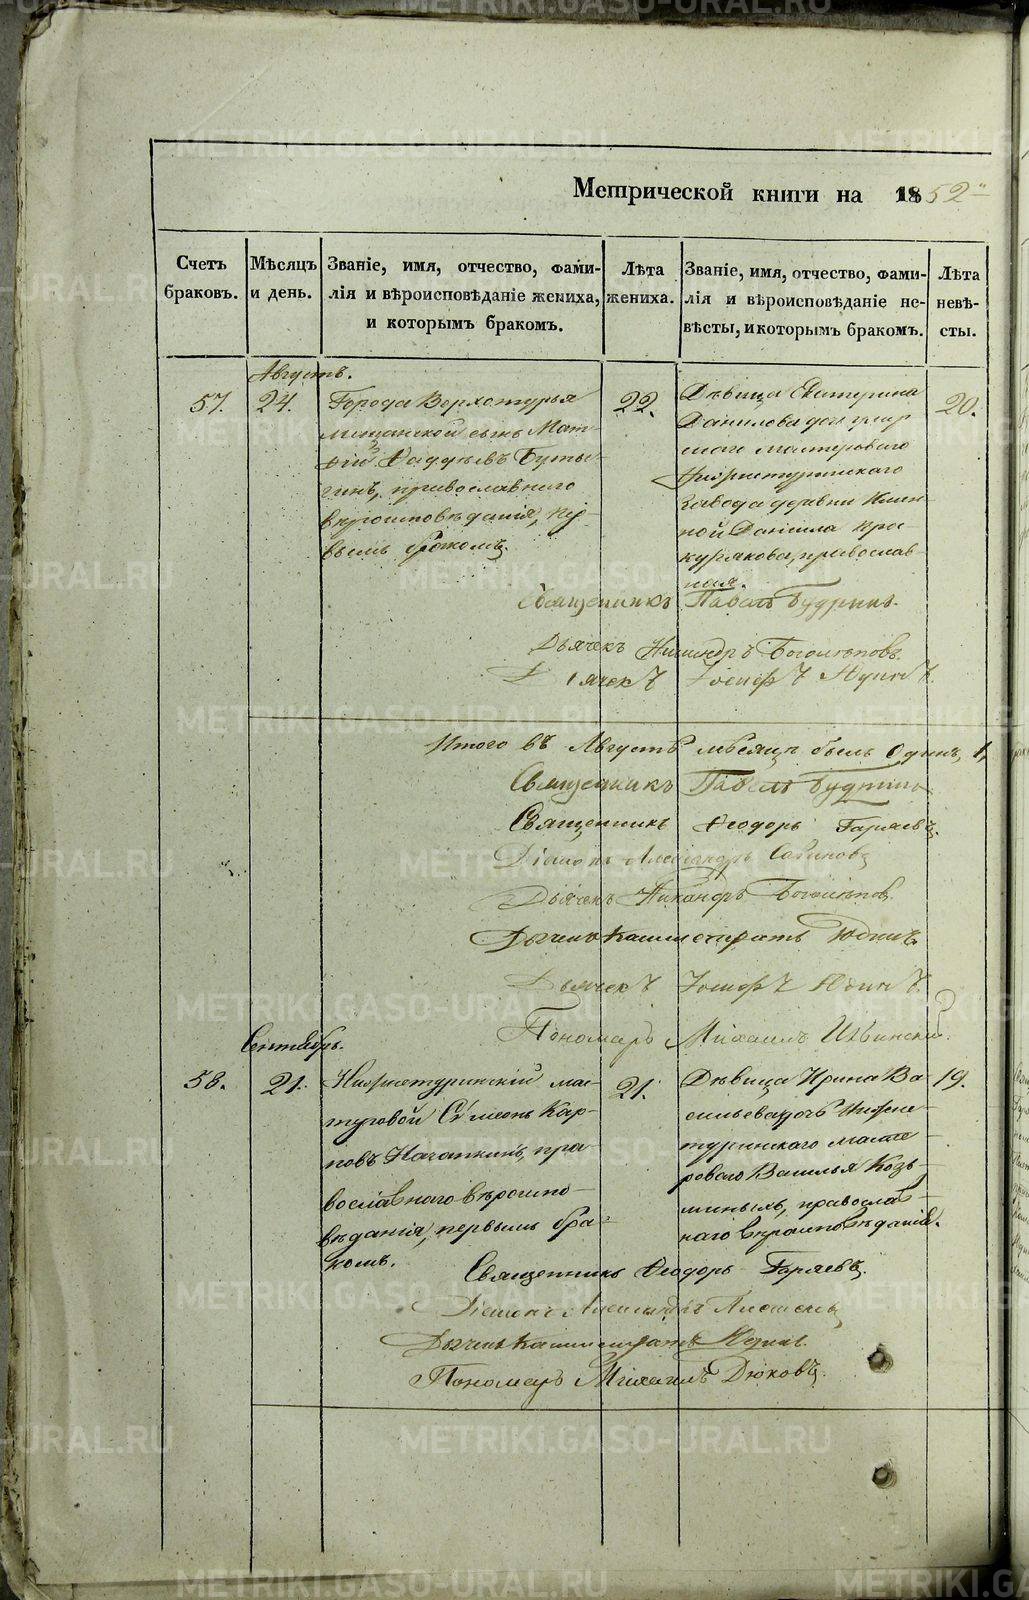 Метрической книги на 1852
Счетъ браковъ.
Мѣсяцъ и день.
Званіе, имя, отчество, фами-
лія и вѣроисповѣданіе жениха,
и которымъ бракомъ.
Лѣта жениха.
Званіе, имя, отчество, фами-
лія и вѣроисповѣданіе не-
вѣсты, и которымъ бракомъ.
Лѣта невѣ-
сты.
Августъ.
57.
24.
Города Верхотурья
мещанской сынъ Мат-
ѳій Ѳаддѣевъ Буты-
гинъ, православнаго
вѣроисповѣданія, пер-
вымъ бракомъ.
22.
Дѣвица Екатерина
Данилова дочь
мастероваго
Нижнетуринскаго
завода деревни Имен-
ной Даніила Про-
курякова, православ-
ная.
20.
Священникъ Павелъ Будринъ.
Дьячекъ Никандръ Боголѣповъ.
Дьячекъ Іосифъ Юдинъ.
Итого въ Августѣ мѣсяцѣ былъ Одинъ, 1,
Священникъ Павелъ Будринъ
Священникъ Ѳеодоръ Горяевъ
Діаконъ Александръ
Дьячекъ Никандръ Боголѣповъ.
Дьячекъ Каллистратъ Юдинъ.
Дьячекъ Іосифъ Юдинъ.
Пономарь Михаилъ
Сентябрь.
58.
21.
Нижнетуринскій мас-
теровой Сѵмеонъ Кар-
повъ, пра-
вославнаго вѣроиспо-
вѣданія, первымъ бра-
комъ.
21.
Дѣвица Ирина Ва-
сильева дочь Нижне-
туринскаго масте-
роваго Василья Козь-
миныхъ, православ-
наго вѣроисповѣданія.
19.
Священникъ Ѳеодоръ Горяевъ.
Діаконъ Александръ
Дьячекъ Каллистратъ Юдинъ.
Пономарь Михаилъ Дюковъ.
METRIKI.GASO-URAL.RU